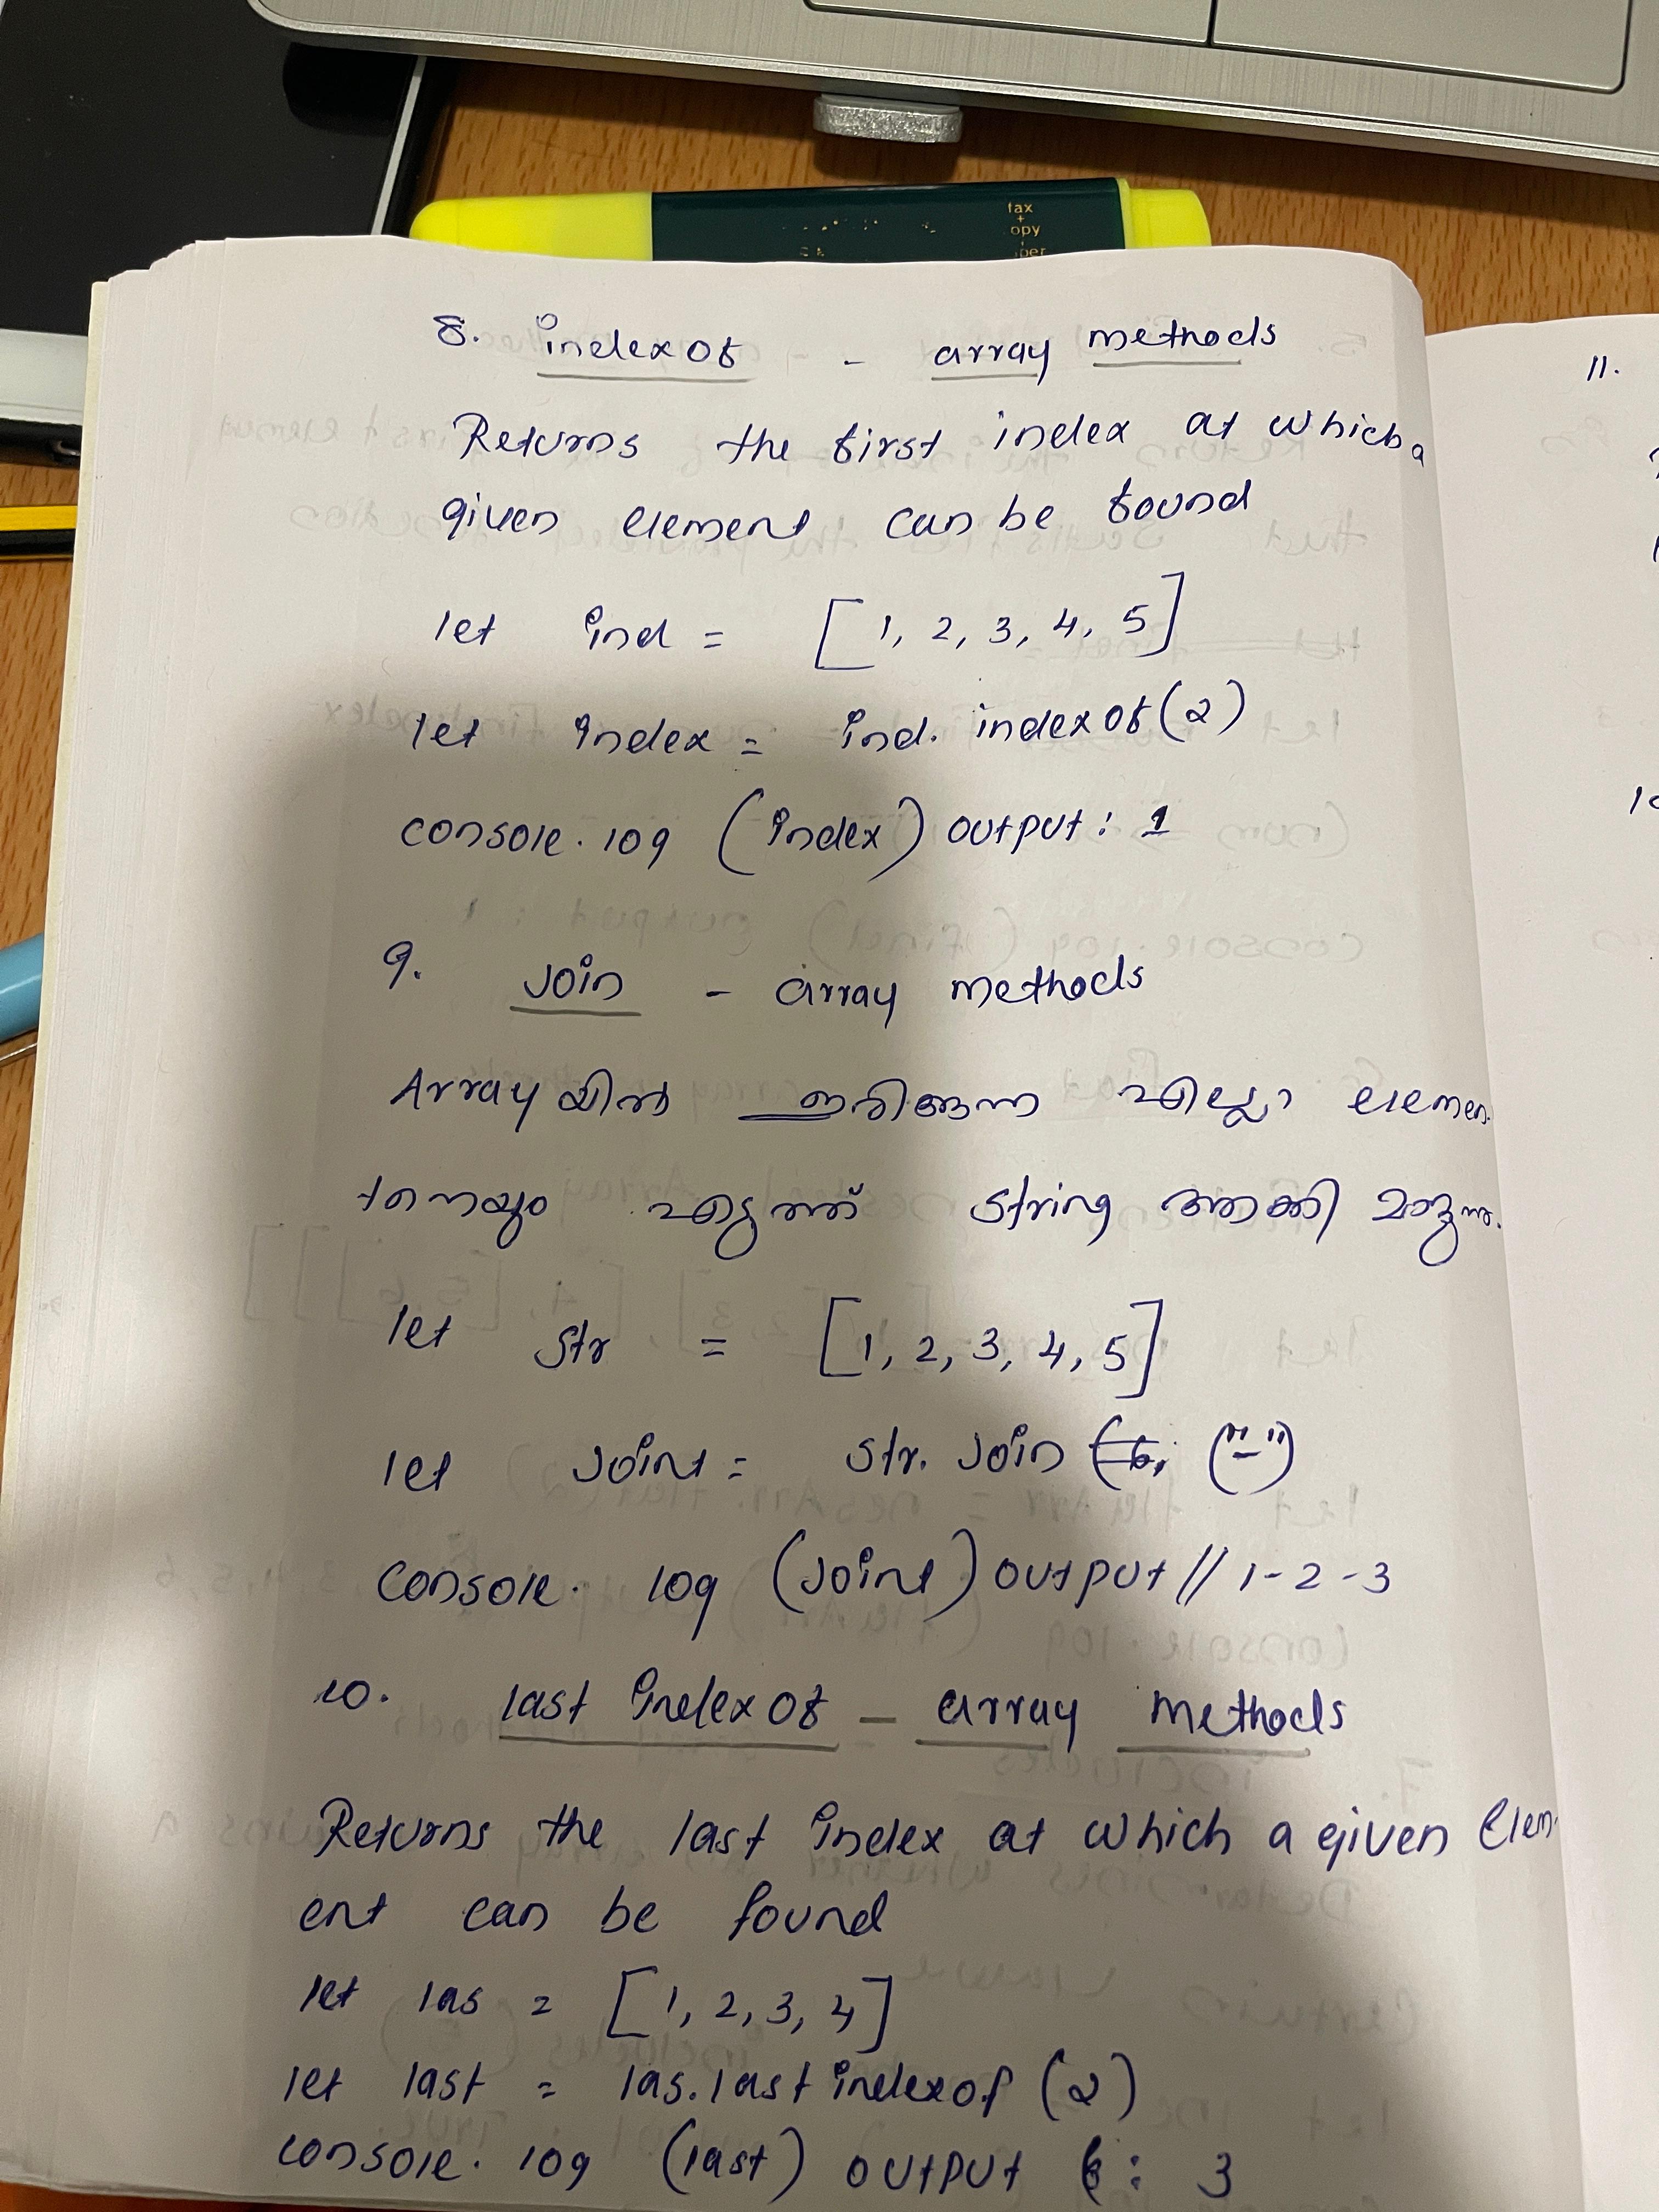 fax
+
opy
+
per
8. indexOf - array methods
Returns the first index at which a
given element can be found
let ind = [1, 2, 3, 4, 5]
let index = ind. indexOf(2)
console.log (index) output: 1
9. Join - array methods
Array യിൽ ഇരിക്കുന്ന എല്ലാ elemen
tനെയും എടുത്ത് string ആക്കി മാറ്റുന്നു.
let str = [1, 2, 3, 4, 5]
let Joint = str. Join ("-")
console. log (Joint) output // 1-2-3
10. last indexOf - array methods
Returns the last index at which a given elem-
ent can be found
let las = [1, 2, 3, 4]
let last = las.last indexof (2)
console. log (last) output : 3
11.